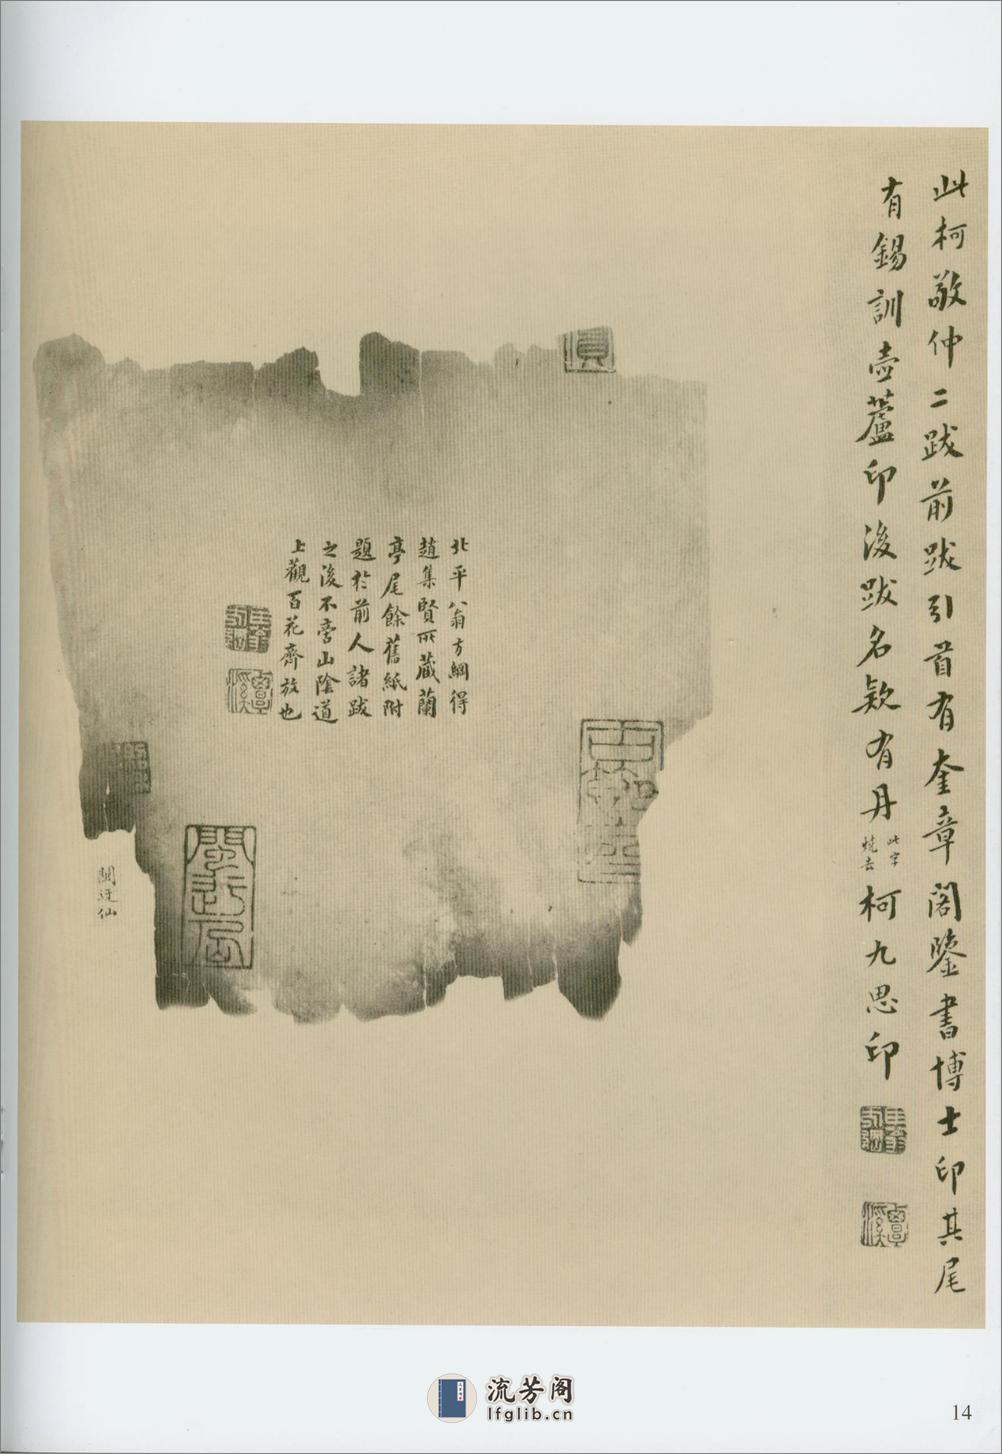 此柯敬仲二跋前跋引首有奎章閣鑒書博士印其尾
有錫訓壺蘆印後跋名款有丹
此字
燒去
柯九思印
北平翁方綱得
趙集賢所藏蘭
亭尾餘舊紙附
題於前人諸跋
之後不啻山陰道
上觀百花齊放也
覃溪
覃溪
流芳阁
lfglib.cn
14